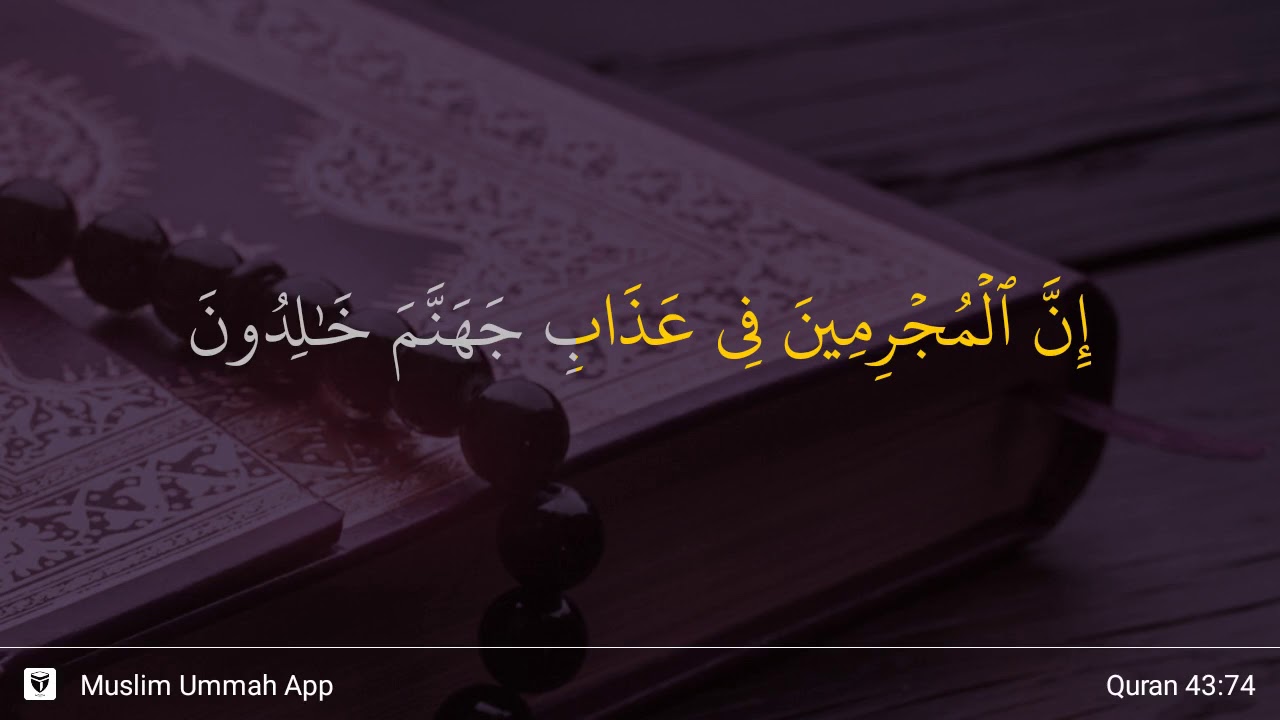 إِنَّ ٱلْمُجْرِمِينَ فِى عَذَابِ جَهَنَّمَ خَٰلِدُونَ
Muslim Ummah App
Quran 43:74